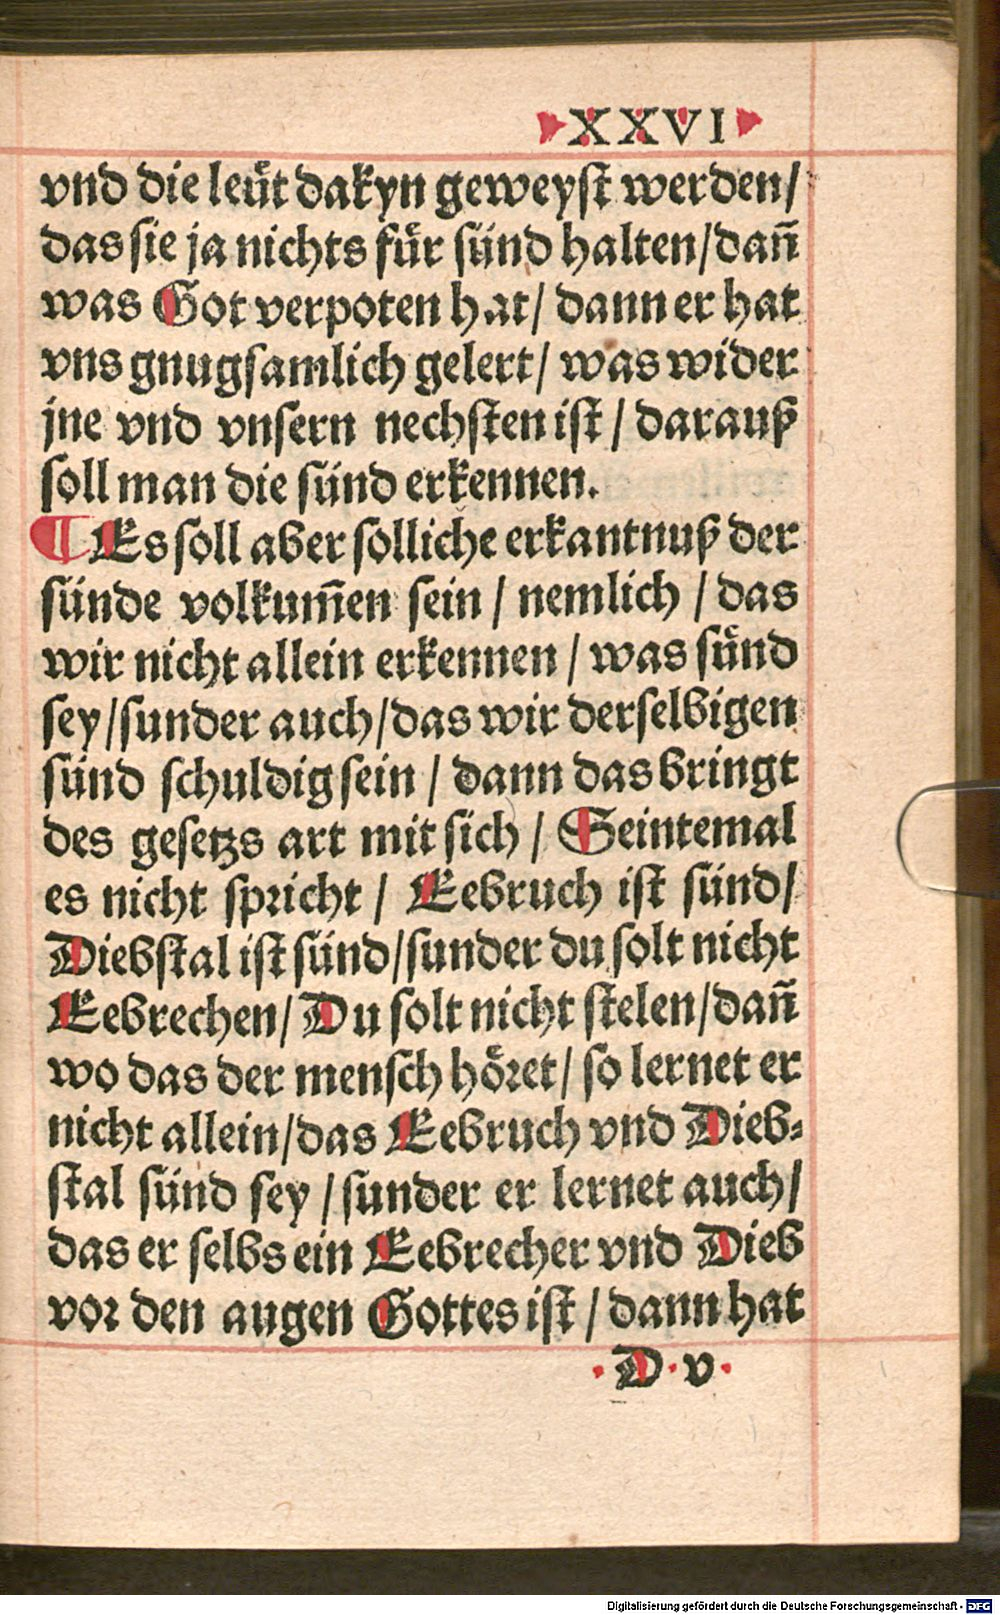 XXVI
vnd die leüt dahyn geweyst werden/
das sie ja nichts für sünd halten/dañ
was Got verpoten hat/ dann er hat
vns gnugsamlich gelert/ was wider
jne vnd vnsern nechsten ist/ darauß
soll man die sünd erkennen.
¶ Es soll aber solliche erkantnuß der
sünde volkum̃en sein / nemlich / das
wir nicht allein erkennen / was sünd
sey/sunder auch/das wir derselbigen
sünd schuldig sein / dann das bringt
des gesetzs art mit sich / Seintemal
es nicht spricht / Eebruch ist sünd/
Diebstal ist sünd/sunder du solt nicht
Eebrechen/ Du solt nicht stelen/dañ
wo das der mensch höret/ so lernet er
nicht allein/das Eebruch vnd Dieb⸗
stal sünd sey / sunder er lernet auch/
das er selbs ein Eebrecher vnd Dieb
vor den augen Gottes ist / dann hat
D v
Digitalisierung gefördert durch die Deutsche Forschungsgemeinschaft - DFG